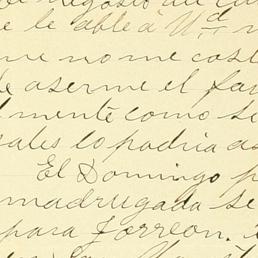 e le able á Ud
me no me cost
de aserme el fa
lmente como se
sales lo padria as
El Domingo p
madrugada se
para Torreon.